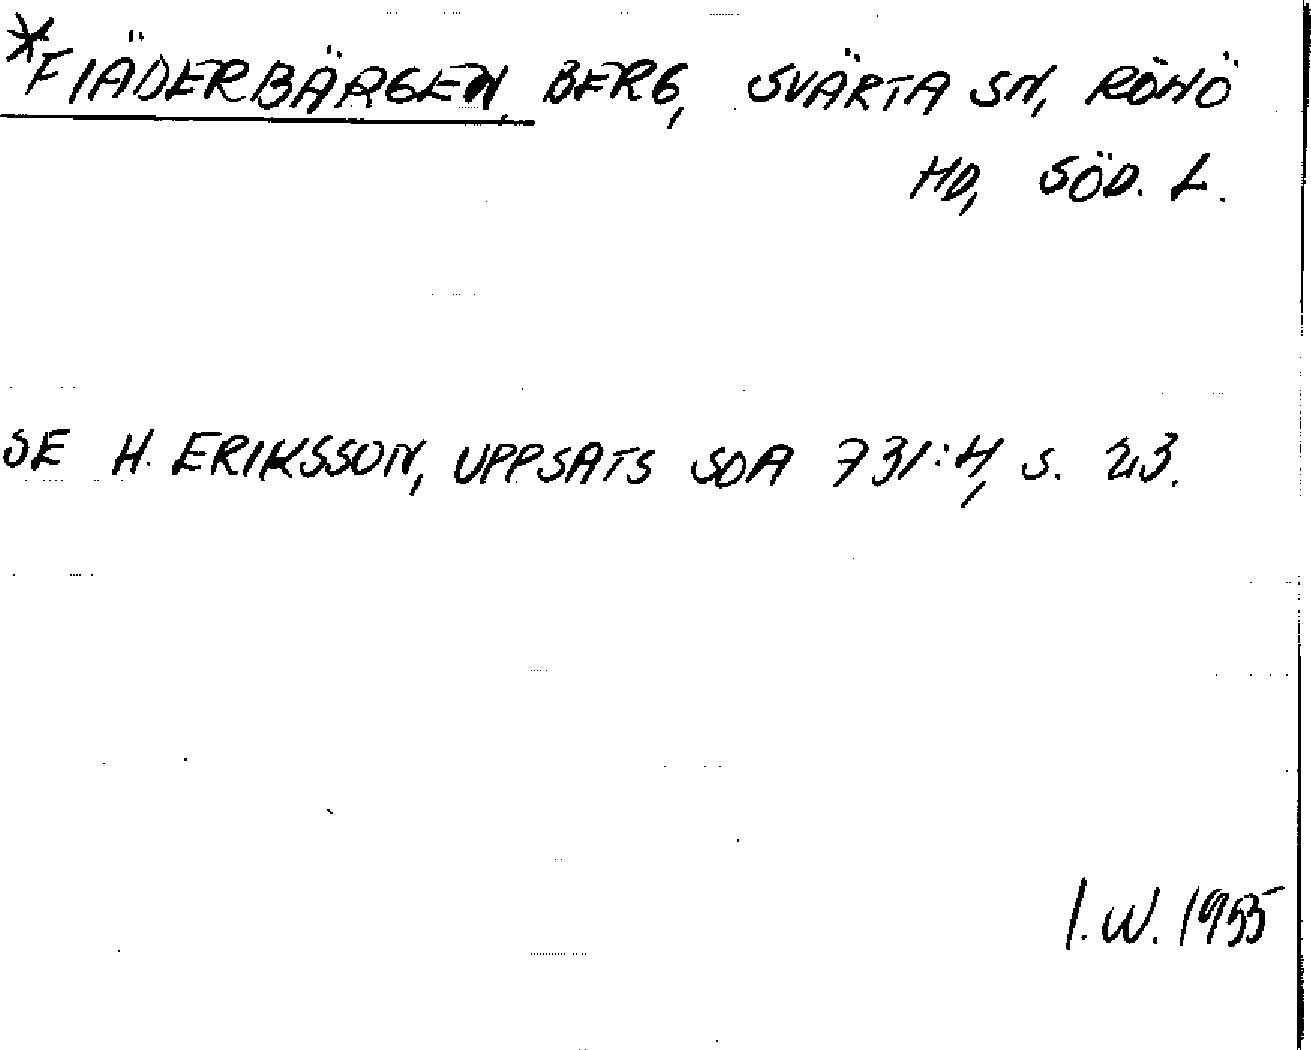 *FIÄDERBÄRGEN, BERG, SVÄRTA SN, RÖNÖ
HD, SÖD. L.
SE H. ERIKSSON, UPPSATS SOA 731:4, s. 23.
I.W. 1955